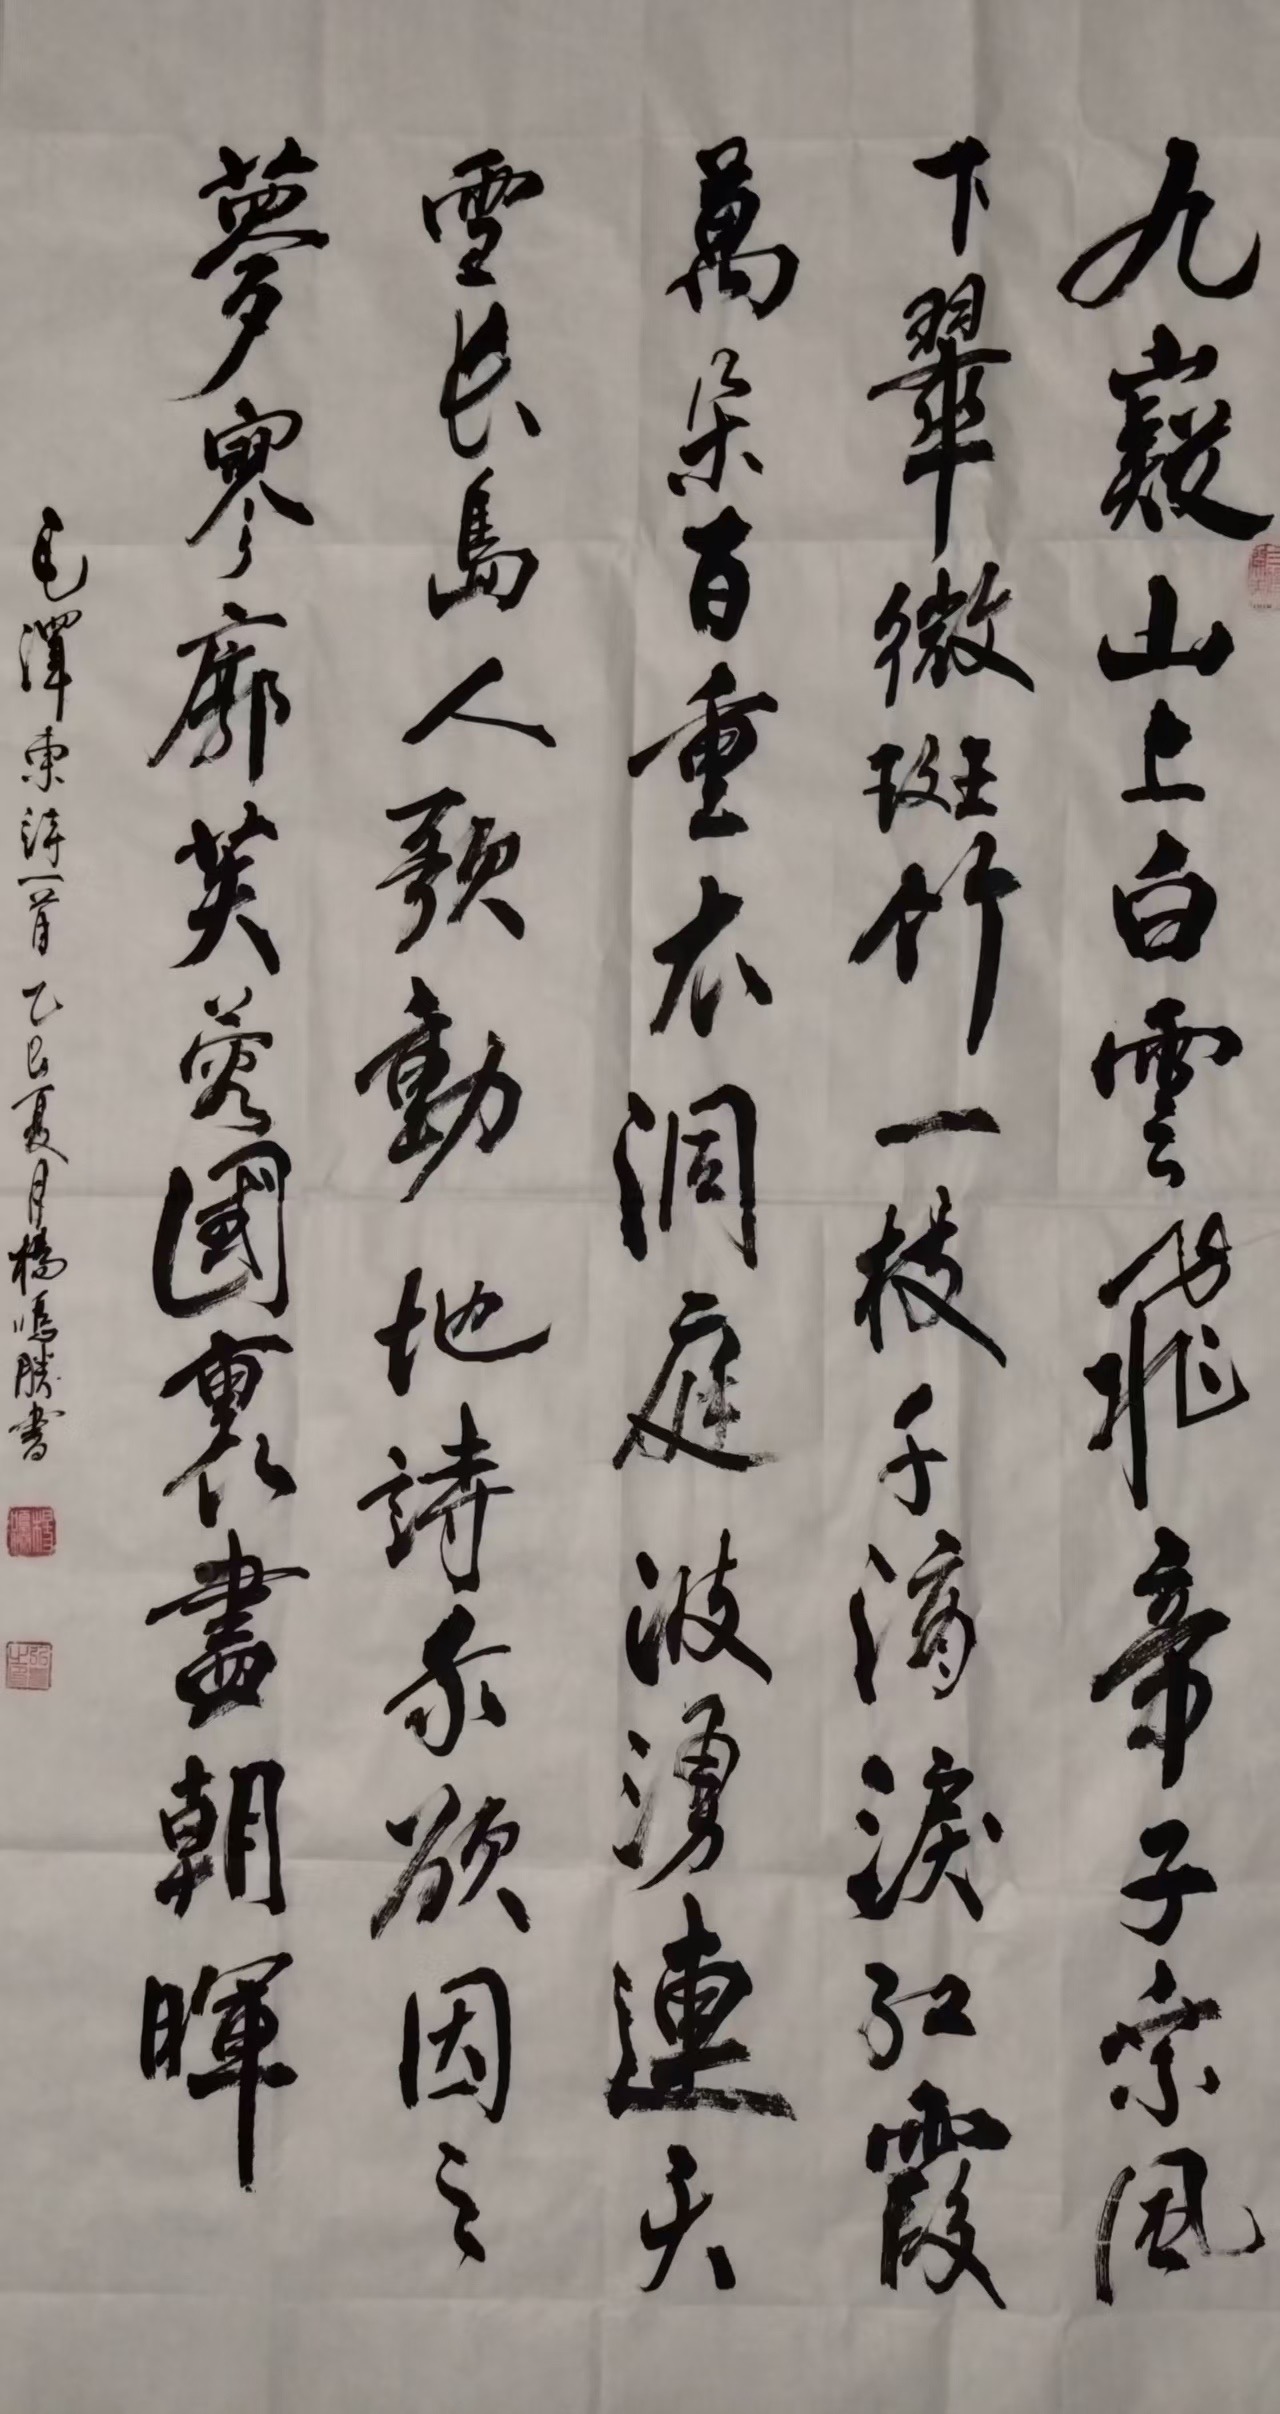 九嶷山上白雲飛帝子乘風
下翠微斑竹一枝千滴淚紅霞
萬朵百重衣洞庭波湧連天
雪長島人歌動地詩我欲因之
夢寥廓芙蓉國裏盡朝暉
毛澤東詩一首乙巳夏月楊鴻勝書